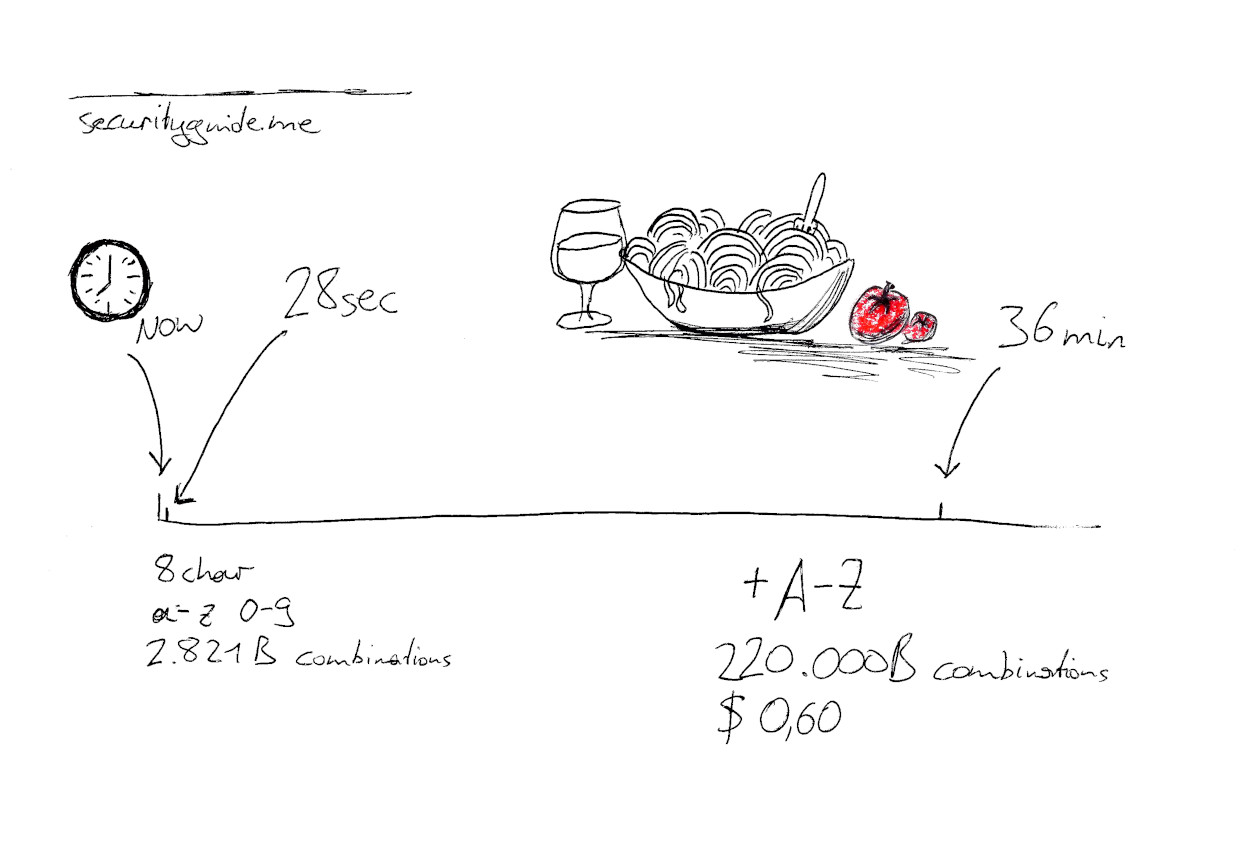 securityguide.me
NOW
28sec
36min
8char
a-z 0-9
2.821B combinations
+A-Z
220.000B combinations
$ 0,60